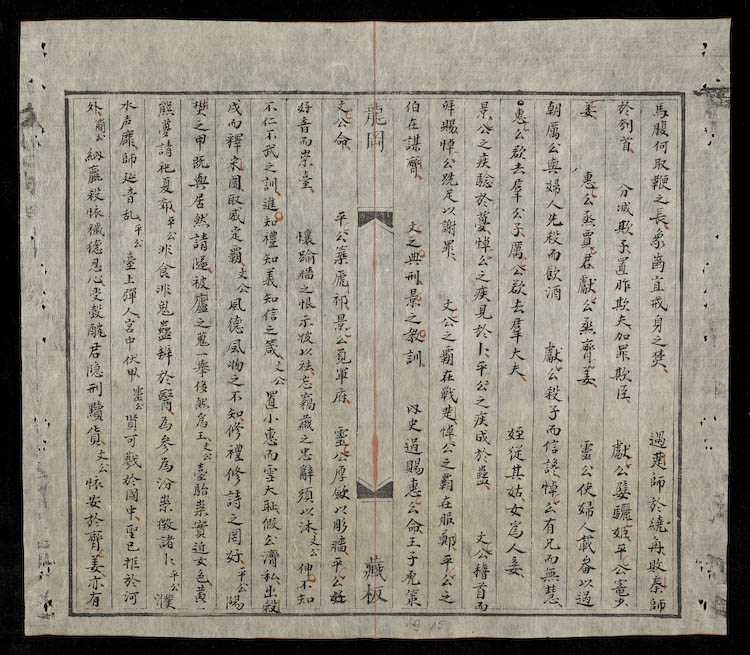 馬腹何取鞭之長象齒宜戒身之焚 遇楚師於繞角敗秦師
於刳首 分城欺子置昨欺夫加罪欺臣 獻公嬖驪姬平公
姜 惠公烝賈君獻公烝齊姜 靈公使婦人載畚以過
朝厲公與婦人先殺而飲酒 獻公殺子而信讒悼公有兄而無慧
惠公欲去羣公子厲公欲去羣大夫 姪從其姑女為人妾
景公之疾驗於夢悼公之疾見於卜平公之疾成於蠱 文公稽首而
拜賜悼公跣足以謝罪 文公之霸在戰楚悼公之霸在服鄭平公之
伯在謀齊 文之典刑景之教訓 內史過賜惠公命王子虎策
文公命 平公築虒祁景公覓軍府 靈公厚歛以彫牆平公
好音而崇臺 懷踰牆之恨示披以袪忘竊藏之忠辭頭以沐文公伸不知
不仁不武之訓進知禮知義知信之箴文公置小惠而雪大恥假公濟私出穀
戍而釋宋圍取威定霸文公風德風物之不知修禮修詩之罔好平公陽
樊之甲既與居然請隧被廬之蒐一舉後然為王文公臺駘祟實近女色黃
熊夢請祀夏郊平公非食非鬼蠱辨於醫為參為汾祟徵諸卜平公濮
水启靡師延音亂平公臺上彈人宮中伏甲靈公賢可戮於國中聖已推於河
外簡公納嬴殺懷穢德忍心受穀醜君隱刑黷貨文公懷安於齊姜亦有
龍岡
藏板
15